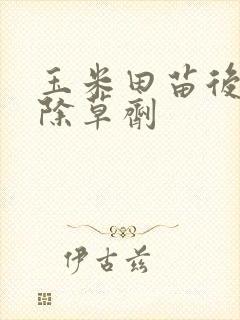 玉米田苗後
除草劑
伊古兹